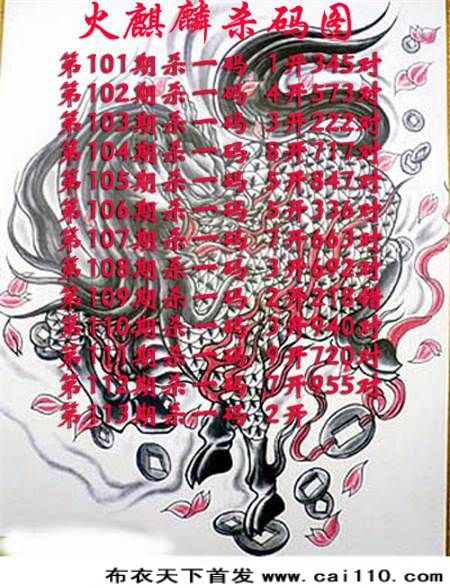 火麒麟杀码图
第101期杀一码 1开345对
第102期杀一码 4开573对
第103期杀一码 3开222对
第104期杀一码 8开717对
第105期杀一码 5开847对
第106期杀一码 5开336对
第107期杀一码 7开663对
第108期杀一码 3开692对
第109期杀一码 2开218错
第110期杀一码 3开940对
第111期杀一码 9开720对
第112期杀一码 7开955对
第113期杀一码 2开
布衣天下首发 www.cai110.com